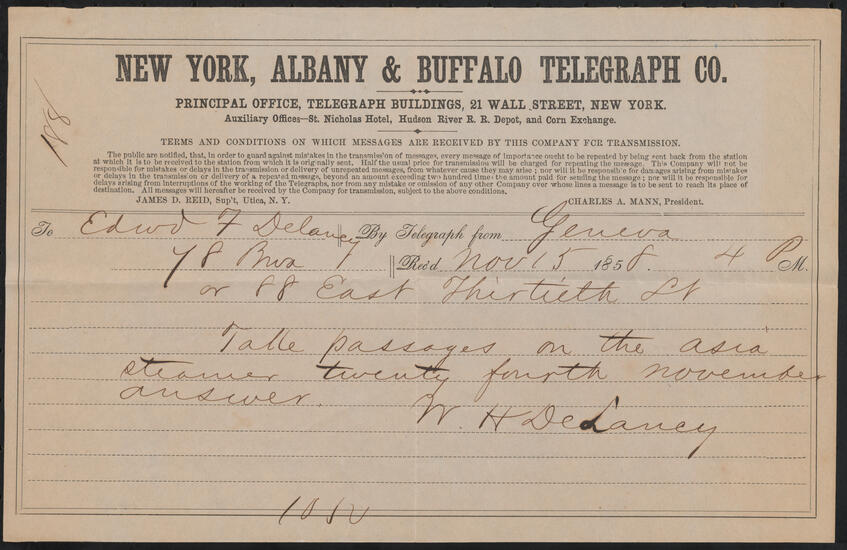 NEW YORK, ALBANY & BUFFALO TELEGRAPH CO.
PRINCIPAL OFFICE, TELEGRAPH BUILDINGS, 21 WALL STREET, NEW YORK.
Auxiliary Offices—St. Nicholas Hotel, Hudson River R. R. Depot, and Corn Exchange.
TERMS AND CONDITIONS ON WHICH MESSAGES ARE RECEIVED BY THIS COMPANY FOR TRANSMISSION.
The public are notified, that, in order to guard against mistakes in the transmission of messages, every message of importance ought to be repeated by being sent back from the station
at which it is to be received to the station from which it is originally sent. Half the usual price for transmission will be charged for repeating the message. This Company will not be
responsible for mistakes or delays in the transmission or delivery of unrepeated messages, from whatever cause they may arise; nor will it be responsible for damages arising from mistakes
or delays in the transmission or delivery of a repeated message, beyond an amount exceeding two hundred times the amount paid for sending the message; nor will it be responsible for
delays arising from interruptions of the working of the Telegraphs, nor from any mistake or omission of any other Company over whose lines a message is to be sent to reach its place of
destination. All messages will hereafter be received by the Company for transmission, subject to the above conditions.
JAMES D. REID, Sup't, Utica, N. Y. CHARLES A. MANN, President.
To Edwd F Delancy By Telegraph from Geneva
78 Rec'd Nov 15 1858. 4 P M.
or 88 East Thirtieth St
Take passages on the asia
steamer twenty fourth november
answer. W. H DeLancey